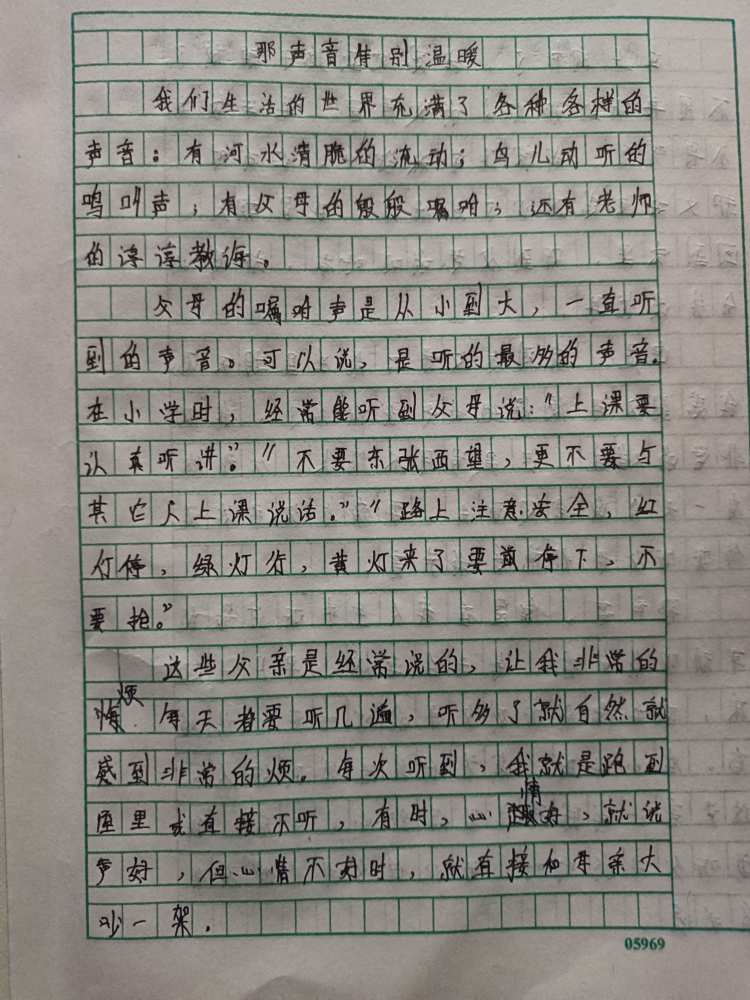 那声音特别温暖
我们生活的世界充满了各种各样的
声音：有河水清脆的流动；鸟儿动听的
鸣叫声；有父母的般般嘱咱；还有老师
的谆谆教诲。
父母的嘱咱声是从小到大，一直听
到的声音。可以说，是听的最多的声音。
在小学时，经常能听到父母说：“上课要
认真听讲”。“不要东张西望，更不要与
其它人上课说话。”“路上注意安全，红
灯停，绿灯行，黄灯来了要停下，不
要抢。”
这些父亲是经常说的，让我非常的
烦.每天都要听几遍，听多了就自然就
感到非常的烦。每次听到，我就是跑到
屋里或直接不听，有时，心情好，就说
声好，但心情不好时，就直接和母亲大
吵一架.
05969